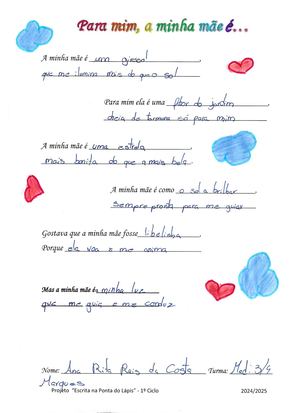 Para mim, a minha mãe é...
A minha mãe é um girassol
que me ilumina mais do que o sol.
Para mim ela é uma flor do jardim
cheia de ternura só para mim.
A minha mãe é uma estrela
mais bonita do que a mais bela.
A minha mãe é como o sol a brilhar
sempre pronta para me guiar.
Gostava que a minha mãe fosse libelinha
Porque ela voa e me anima.
Mas a minha mãe é a minha luz
que me guia e me conduz.
Nome: Ana Rita Rais da Costa Turma: Mod. 3/4
Marques
Projeto "Escrita na Ponta do Lápis" - 1º Ciclo 2024/2025